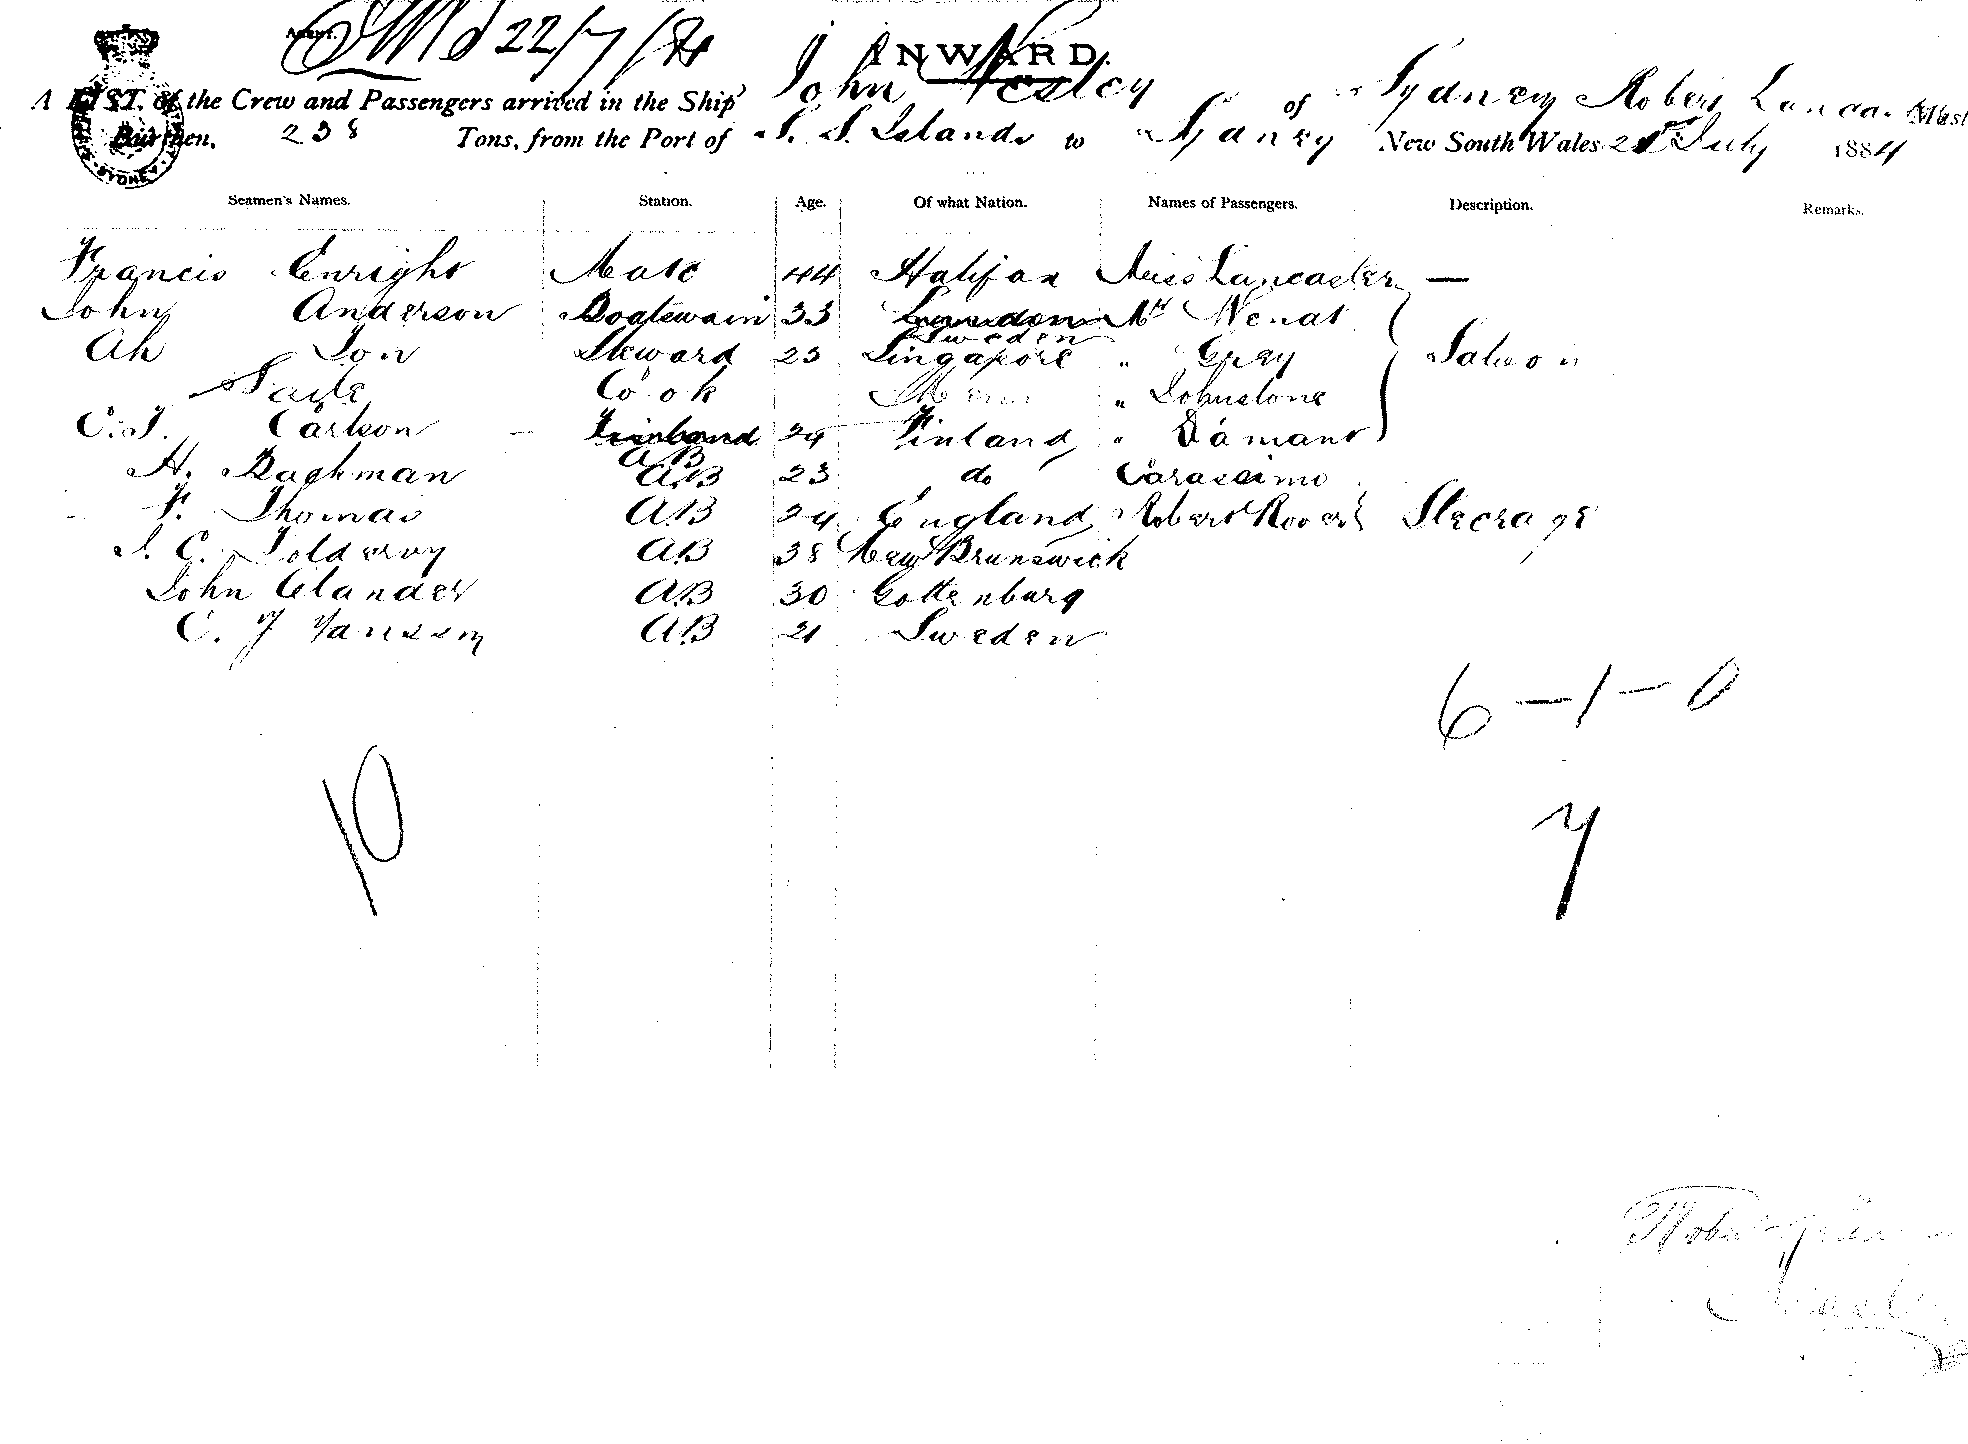 22/7/84
INWARD.
A LIST of the Crew and Passengers arrived in the Ship John Wesley of Sydney Robert Mast
Burthen, 238 Tons, from the Port of S. S. Islands to Sydney New South Wales 21st July 1884
Seamen's Names. Station. Age. Of what Nation. Names of Passengers. Description. Remarks.
Francis Enright Mate 44 Halifax Miss Lancaster —
John Anderson Boatswain 33 Sweden Mr
Ah Steward 23 Singapore " Grey Saloon
Cook " Johnstone
C. J. Carlson AB 24 Finland " Damant
H. Backman AB 23 do
F. Thomas AB 24 England Robert Steerage
J. C. AB 38 New Brunswick
John Elander AB 30 Gottenburg
C. J. Jansson AB 21 Sweden
6 – 1 – 0
10
7